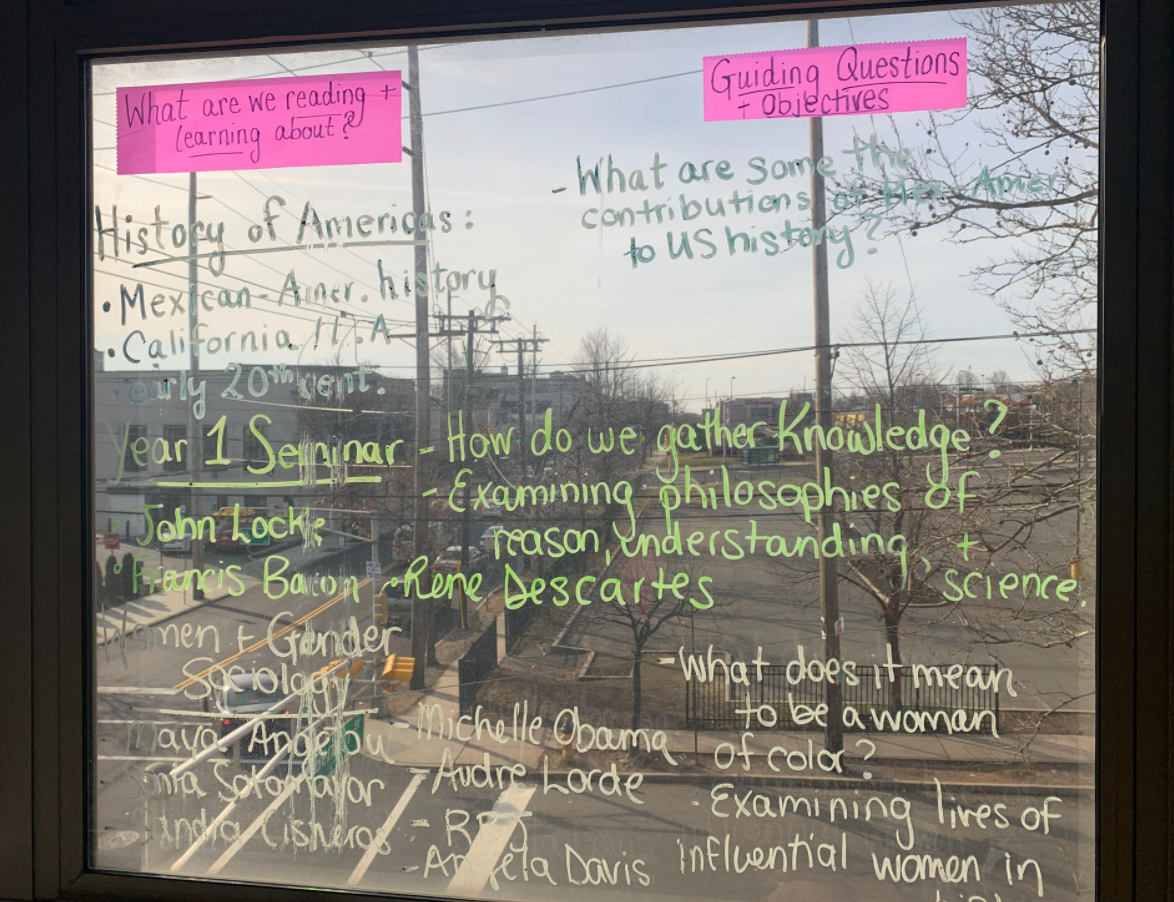 What are we reading +
learning about?
Guiding Questions
+ Objectives
- What are some the
contributions of Mex. Amer
to US history?
History of Americas:
• Mexican-Amer. history
• California / L.A
• early 20th cent.
Year 1 Seminar
- How do we gather Knowledge?
- Examining philosophies of
reason, understanding, +
science.
• John Locke
• Francis Bacon • Rene Descartes
Women + Gender
Sociology
Maya Angelou
Sonia Sotomayor
Sandra Cisneros
- Michelle Obama
- Audre Lorde
- RBG
- Angela Davis
- What does it mean
to be a woman
of color?
• Examining lives of
influential women in